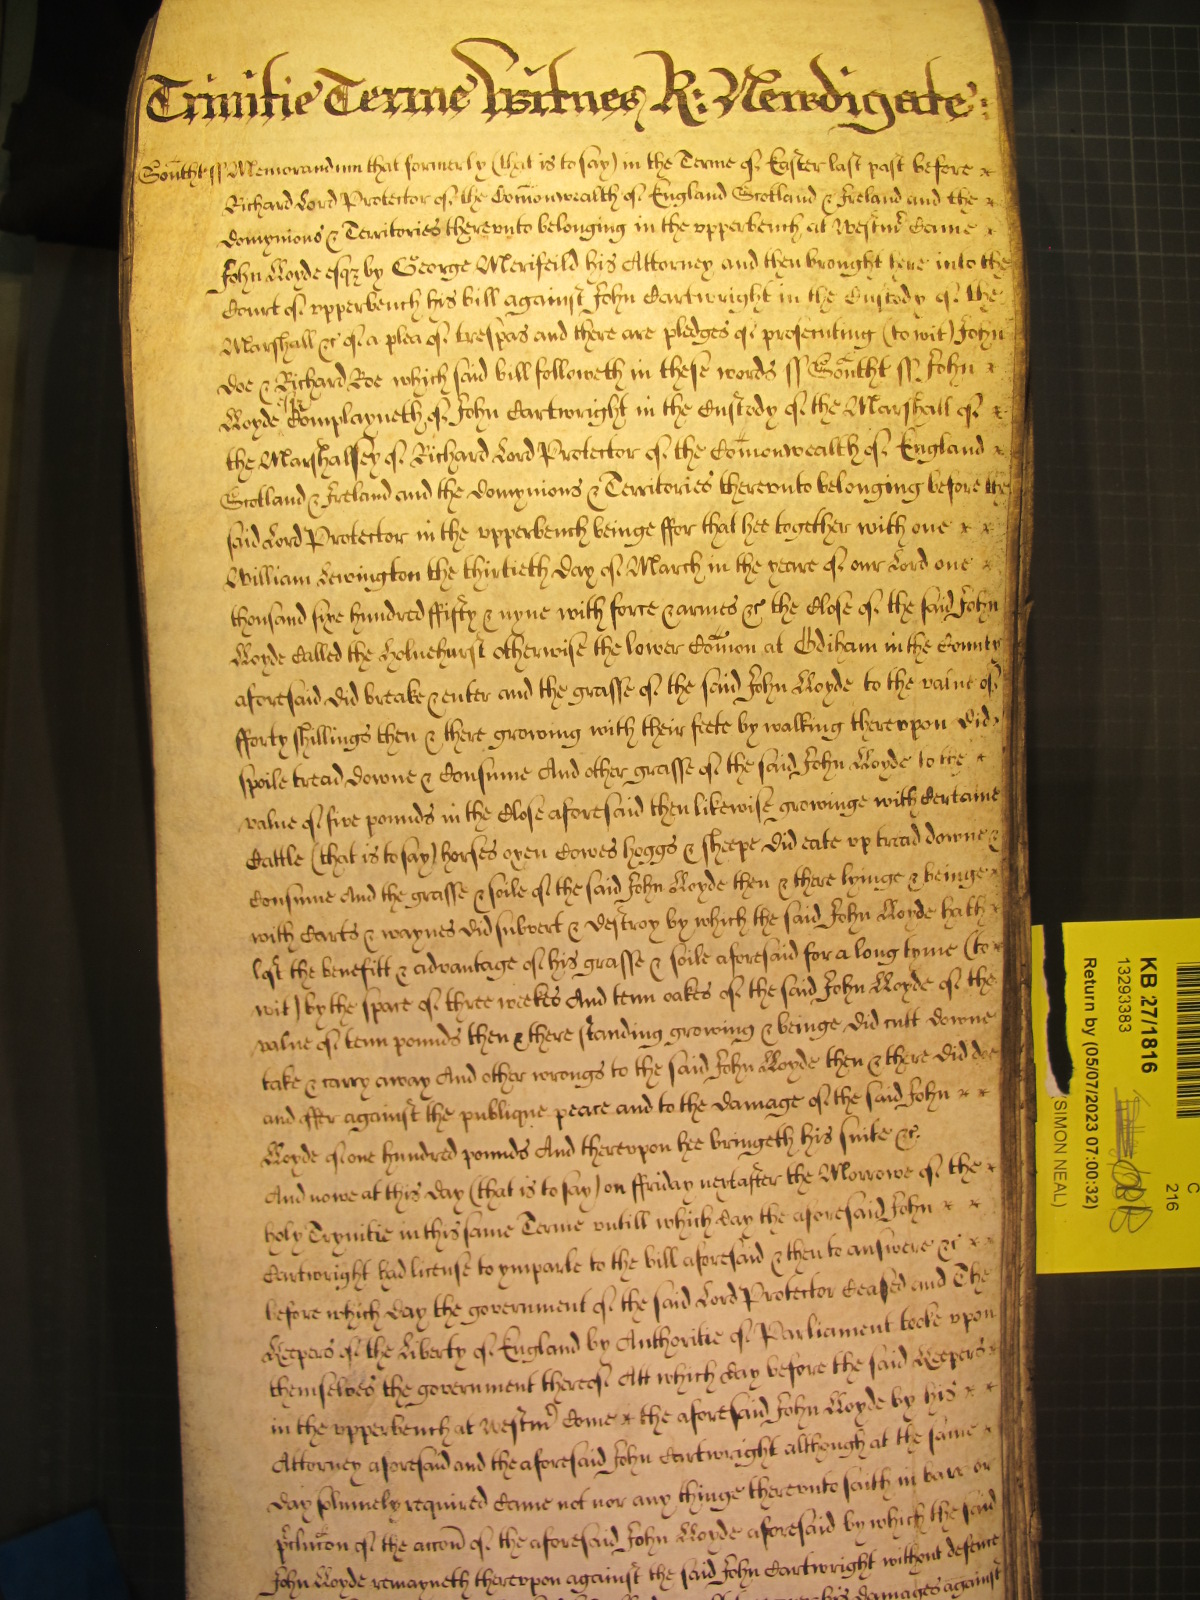 Trinitie Terme Witnes R: Newdigate:
Southt ss Memorandum that formerly (that is to say) in the Terme of Easter last past before
Richard Lord Protector of the Comonwealth of England Scotland & Ireland and the
domynions & Territories therevnto belonging in the vpperbench at Westmr Came
John Lloyde esqr by George Merifeild his Attorney and then brought here into the
Court of vpperbench his bill against John Cartwright in the Custody of the
Marshall &c of a plea of trespas and there are pledges of prosecuting (to wit) John
Doe & Richard Roe which said bill followeth in these words ss Southt ss John
Lloyde esqr Complayneth of John Cartwright in the Custody of the Marshall of
the Marshalsey of Richard Lord Protector of the Comonwealth of England
Scotland & Ireland and the domynions & Territories therevnto belonging before the
said Lord Protector in the vpperbench beinge ffor that hee together with one
William Lewington the thirtieth day of March in the yeare of our Lord one
thousand sixe hundred ffifty & nyne with force & armes &c the Close of the said John
Lloyde Called the Holnehurst otherwise the lower Comon at Odiham in the County
aforesaid did breake & enter and the grasse of the said John Lloyde to the value of
fforty shillings then & there growing with their feete by walking therevpon did
spoile tread downe & Consume And other grasse of the said John Lloyde to the
value of five pounds in the Close aforesaid then likewise growinge with Certaine
Cattle (that is to say) horses oxen Cowes hoggs & sheepe did eate vp tread downe &
Consume And the grasse & soile of the said John Lloyde then & there lyinge & beinge
with Carts & waynes did subvert & destroy by which the said John Lloyde hath
lost the benefitt & advantage of his grasse & soile aforesaid for a long tyme (to
wit) by the space of three weekes And tenn oakes of the said John Lloyde of the
value of tenn pounds then & there standing growing & beinge did cutt downe
take & carry away And other wrongs to the said John Lloyde then & there did doe
and offer against the publique peace and to the damage of the said John
Lloyde of one hundred pounds And therevpon hee bringeth his suite &c.
And nowe at this day (that is to say) on ffriday next after the Morrowe of the
holy Trynitie in this same Terme vntill which day the aforesaid John
Cartwright had license to ymparle to the bill aforesaid & then to answere &c
before which day the government of the said Lord Protector Ceased and The
Keepers of the Liberty of England by Authoritie of Parliament tooke vpon
themselves the government thereof Att which day before the said Keepers
in the vpperbench at Westmr Come the aforesaid John Lloyde by his
Attorney aforesaid and the aforesaid John Cartwright although at the same
day solemnely required Came not nor any thinge therevnto saith in barr or
preclucon of the accon of the aforesaid John Lloyde aforesaid by which the said
John Lloyde remayneth therevpon against the said John Cartwright without defence
his damages against
KB 27/1816
13293383
Return by (05/07/2023 07:00:32)
SIMON NEAL)
C
216